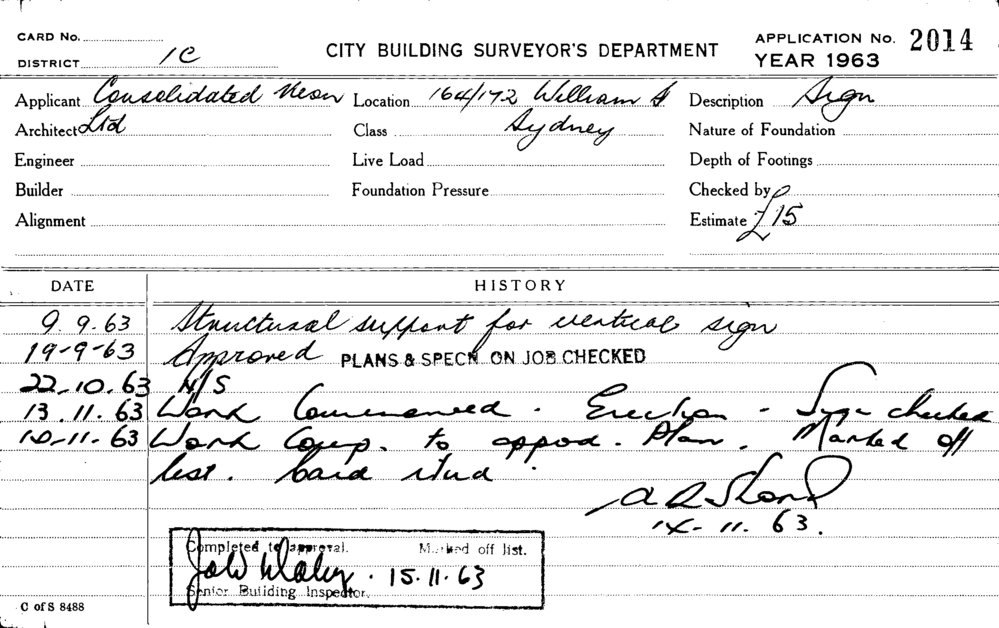 CARD No.
DISTRICT 1C
CITY BUILDING SURVEYOR'S DEPARTMENT
APPLICATION No. 2014
YEAR 1963
Applicant Consolidated Neon Location 164/172 William St Description Sign
Architect Ltd Class Sydney Nature of Foundation
Engineer Live Load Depth of Footings
Builder Foundation Pressure Checked by
Alignment Estimate £15
DATE HISTORY
9.9.63 Structural support for vertical sign
19-9-63 Approved PLANS & SPECN ON JOB CHECKED
22.10.63 N/S
13.11.63 Work Commenced. Erection - Sign checked
-11-63 Work Comp. to appod. Plan. Marked off
list. Card stud.
-11.63.
Completed to approval. Marked off list.
15.11.63
Senior Building Inspector.
C of S 8488